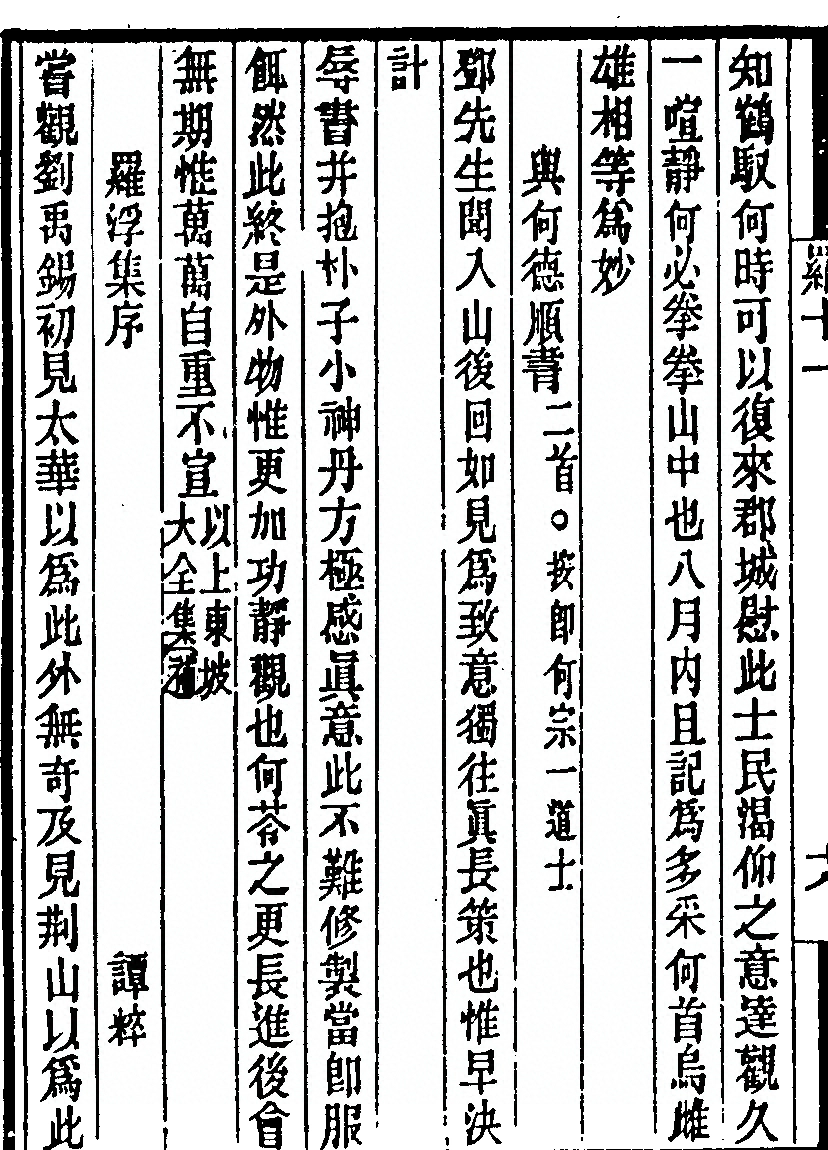 知鶴馭何時可以復來郡城慰此士民渴仰之意達觀久
一喧靜何必拳拳山中也八月内且記爲多采何首烏雌
雄相等爲妙
與何德順書二首○按卽何宗一道士
鄧先生聞入山後回如見爲致意獨往眞長策也惟早決
計
辱書并抱朴子小神丹方極感眞意此不難修製當卽服
餌然此終是外物惟更加功靜觀也何苓之更長進後會
無期惟萬萬自重不宣以上東坡
大全集補
羅浮集序 譚粹
嘗觀劉禹錫初見太華以爲此外無奇及見荆山以爲此